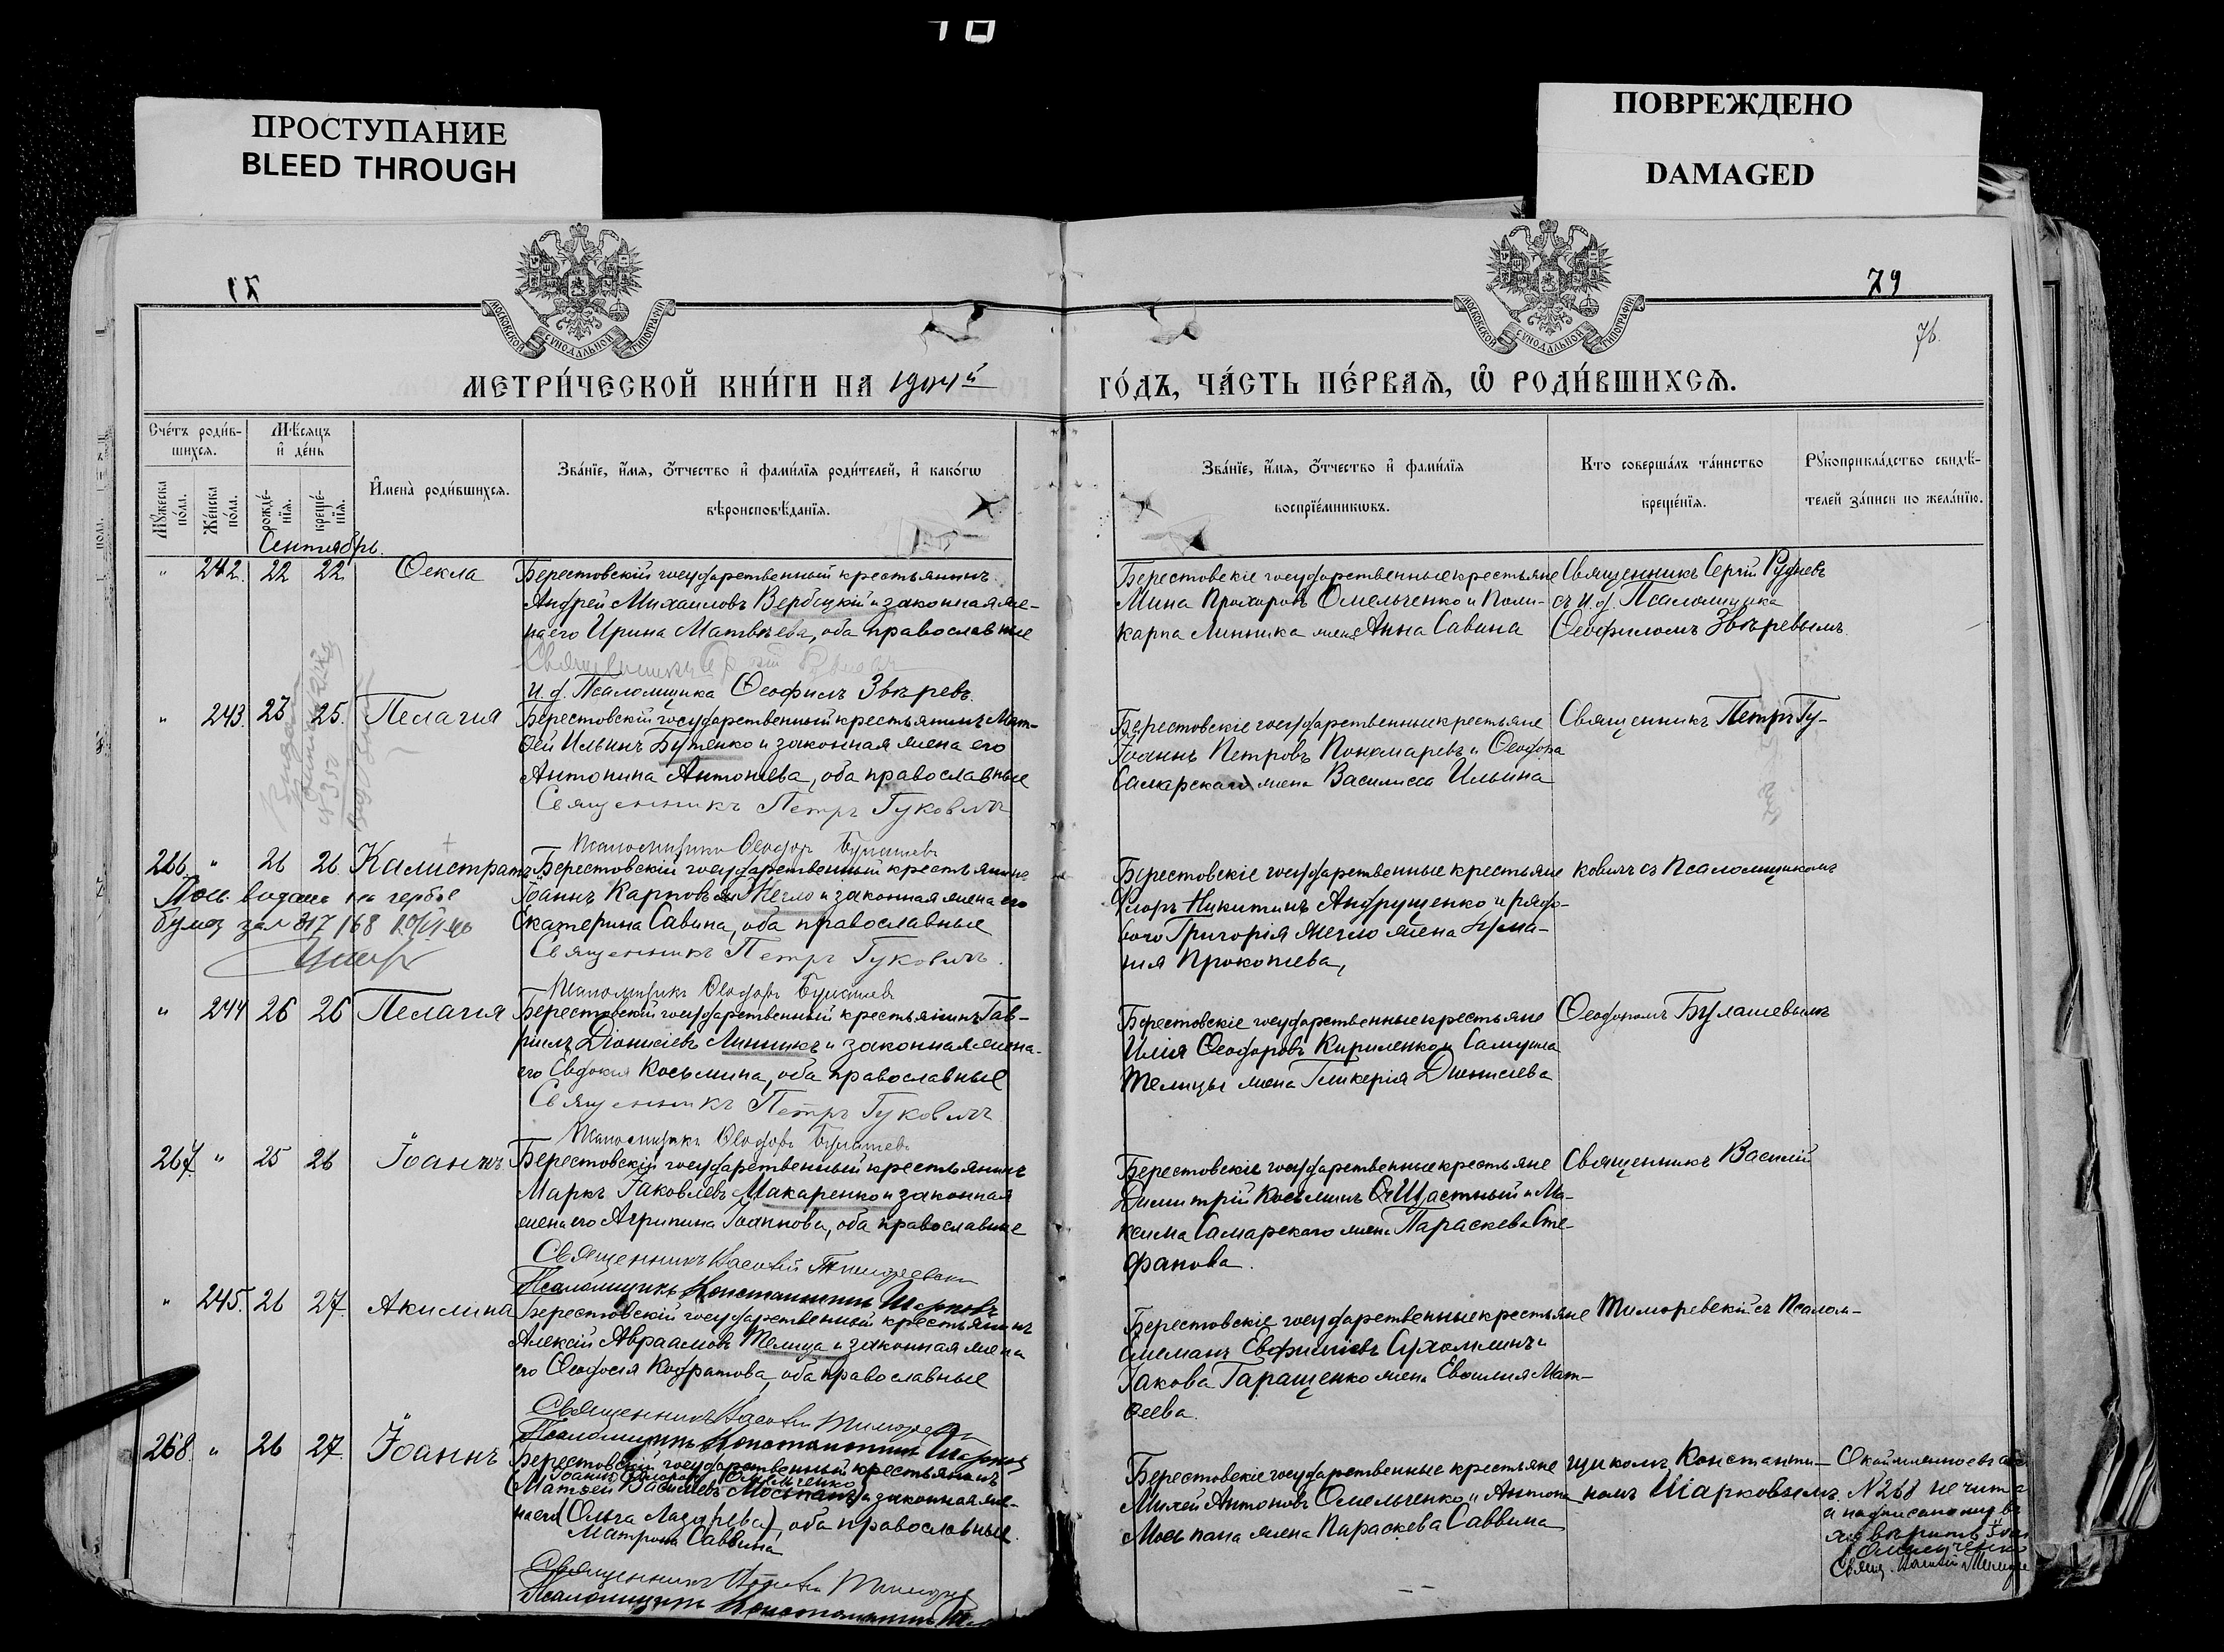 ПРОСТУПАНИЕ
BLEED THROUGH
ПОВРЕЖДЕНО
DAMAGED
79
76.
МОСКОВСКОЙ СѴНОДАЛЬНОЙ ТИПОГРАФІИ
МОСКОВСКОЙ СѴНОДАЛЬНОЙ ТИПОГРАФІИ
МЕТРИ́ЧЕСКОЙ КНИ́ГИ НА 1904й ГО́ДЪ, ЧА́СТЬ ПЕ́РВАѦ, Ѡ҆ РОДИ́ВШИХСѦ.
Сче́тъ роди́в-
шихсѧ.
Мѣ́сѧцъ
и҆ де́нь
Мꙋ́жеска
по́ла.
Же́нска
по́ла.
рожде́-
нїѧ.
креще́-
нїѧ.
И҆мена̀ роди́вшихсѧ.
Зва́нїе, и҆́мѧ, ѻ҆́тчество и҆ фами́лїѧ роди́телей, и҆ како́гѡ
вѣроисповѣ́данїѧ.
Зва́нїе, и҆́мѧ, ѻ҆́тчество и҆ фами́лїѧ
воспрїе́мникѡвъ.
Кто соверша́лъ та́инство
креще́нїѧ.
Рꙋкоприкла́дство свидѣ́-
телей за́писи по жела́нїю.
Сентябрь.
" 242. 22 22 Ѳекла
Берестовскій государственный крестьянинъ
Андрей Михаиловъ Вербицкій и законная же-
на его Ирина Матвѣева, оба православные
Священникъ
и. д. Псаломщика Ѳеофилъ Звѣревъ.
Берестовскіе государственные крестьяне
Мина Прохоровъ Омельченко и Поли-
карпа Линника жена Анна Савина
Священникъ Сергій Рудневъ
съ и. д. Псаломщика
Ѳеофиломъ Звѣревымъ.
" 243. 23 25. Пелагія
Берестовскій государственный крестьянинъ Мат-
ѳей Ильинъ Бутенко и законная жена его
Антонина Антоніева, оба православные
Священникъ Петръ Гуковичъ
Псаломщикъ Ѳеодоръ Булашевъ
Берестовскіе государственные крестьяне
Іоаннъ Петровъ Пономаревъ и Ѳеодора
Самарскаго жена Василисса Ильина
Священникъ Петръ Гу-
266. " 26 26 Калистратъ
Берестовскій государственный крестьянинъ
Іоаннъ Карповъ Жегло и законная жена его
Екатерина Савина, оба православные
Священникъ Петръ Гуковичъ.
Псаломщикъ Ѳеодоръ Булашевъ
Берестовскіе государственные крестьяне
Флоръ Никитинъ Андрущенко и рядо-
вого Григорія Жегло жена
Прокопіева,
ковичъ съ Псаломщикомъ
" 244 26 26 Пелагія
Берестовскій государственный крестьянинъ Гав-
риилъ Діонисіевъ Линникъ и законная жена
его Евдокія Косьмина, оба православные
Священникъ Петръ Гуковичъ
Псаломщикъ Ѳеодоръ Булашевъ
Берестовскіе государственные крестьяне
Илія Ѳеодоровъ Кириленко и Самуила
Телицы жена Гликерія Діонисіева
Ѳеодоромъ Булашевымъ
267. " 25 26 Іоаннъ
Берестовскій государственный крестьянинъ
Маркъ Іаковлевъ Макаренко и законная
жена его Агрипина Іоаннова, оба православные
Священникъ Василій Тиморевскій
Псаломщикъ Константинъ Шарковъ
Берестовскіе государственные крестьяне
Димитрій Косьминъ Щастный и Ма-
ксима Самарскаго жена Параскева Сте-
фанова.
Священникъ Василій
" 245. 26 27. Акилина
Берестовскій государственный крестьянинъ
Алексій Авраамовъ Телица и законная жена
его Ѳеодосія Кодратова, оба православные
Священникъ Василій Тиморевскій
Псаломщикъ Константинъ Шарковъ
Берестовскіе государственные крестьяне
Евфиміевъ Сухомлинъ и
Іакова Таращенко жена Евфимія Мат-
ѳеева.
Тиморевскій съ Псалом-
268. " 26 27. Іоаннъ
Берестовскій государственный крестьянинъ
Омельченко
(Матѳей Василіевъ Мосьпанъ) и законная же-
на его (Ольга Лазарева), оба православные.
Матрона Саввина
Священникъ Василій
Псаломщикъ Константинъ
Берестовскіе государственные крестьяне
Михей Антоновъ Омельченко и Антона
Мосьпана жена Параскева Саввина
щикомъ Константи-
номъ Шарковымъ.
№ 268 не чит
Омельченко
Свящ. Василій